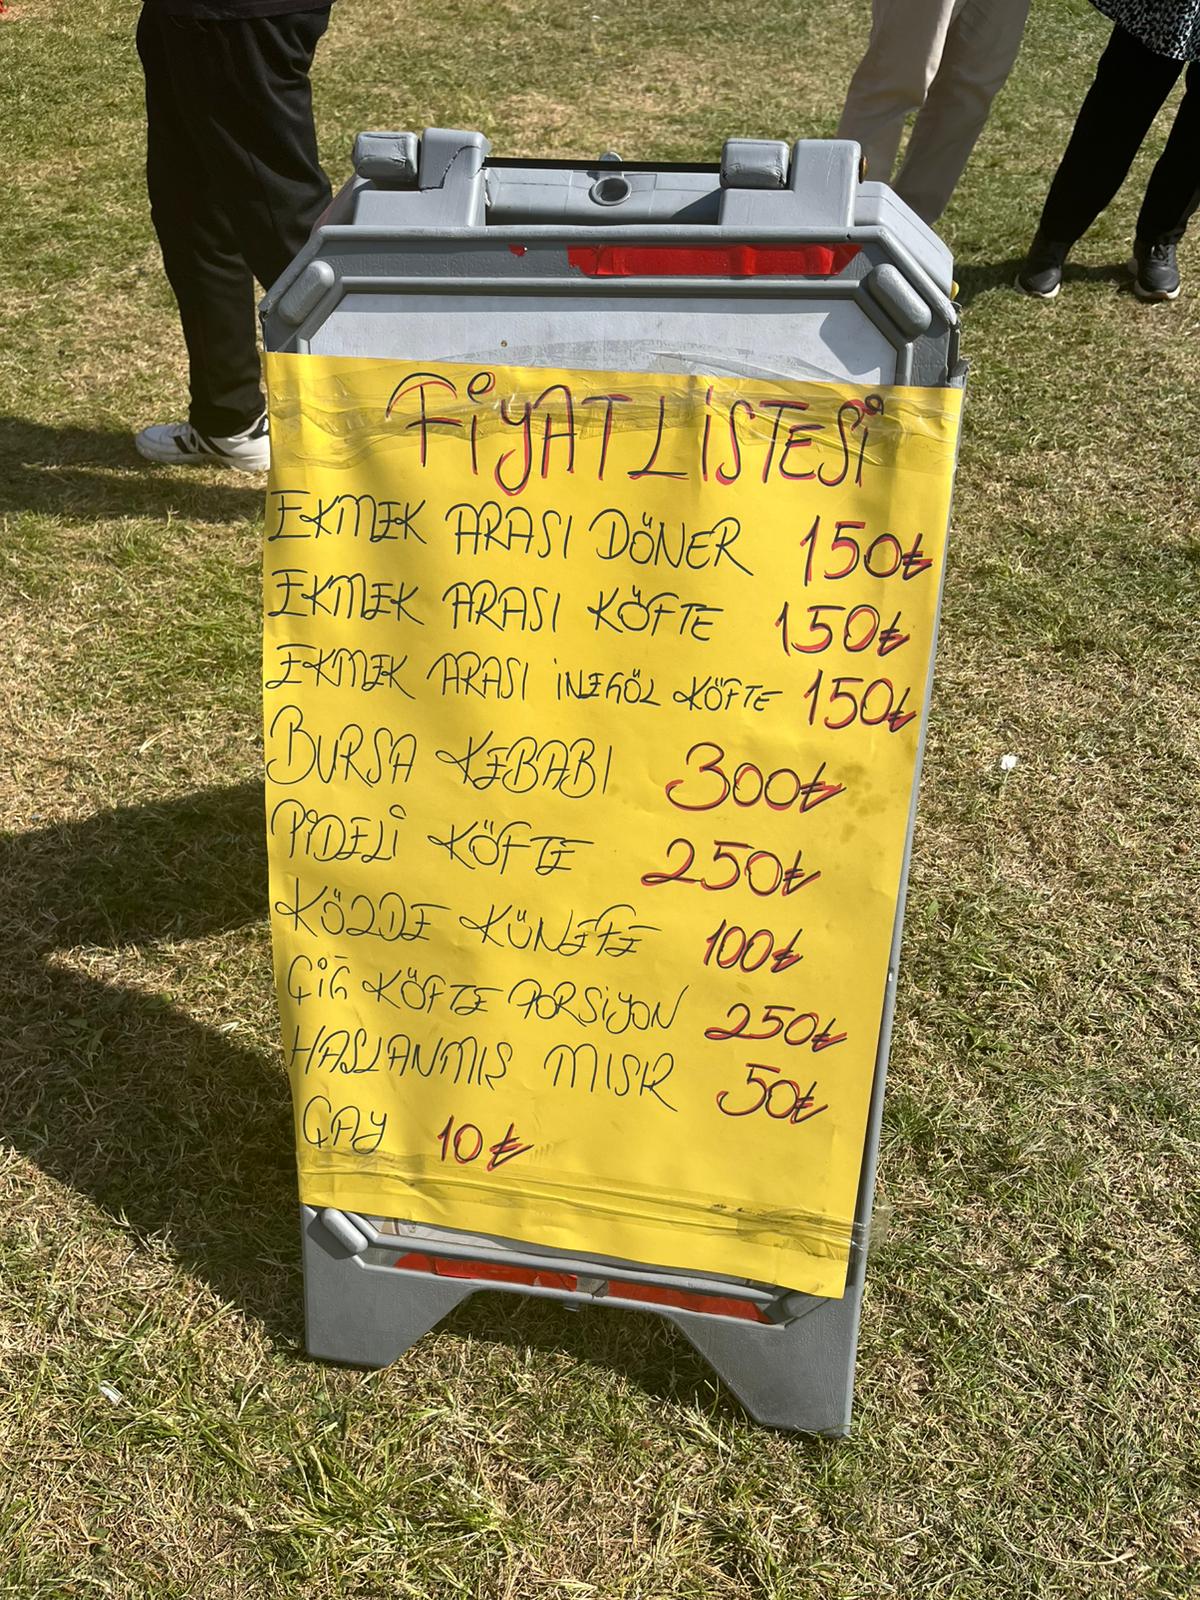 FİYAT LİSTESİ
EKMEK ARASI DÖNER 150₺
EKMEK ARASI KÖFTE 150₺
EKMEK ARASI İNEGÖL KÖFTE 150₺
BURSA KEBABI 300₺
PİDELİ KÖFTE 250₺
KÖZDE KÜNEFE 100₺
ÇİĞ KÖFTE PORSİYON 250₺
HAŞLANMIŞ MISIR 50₺
ÇAY 10₺